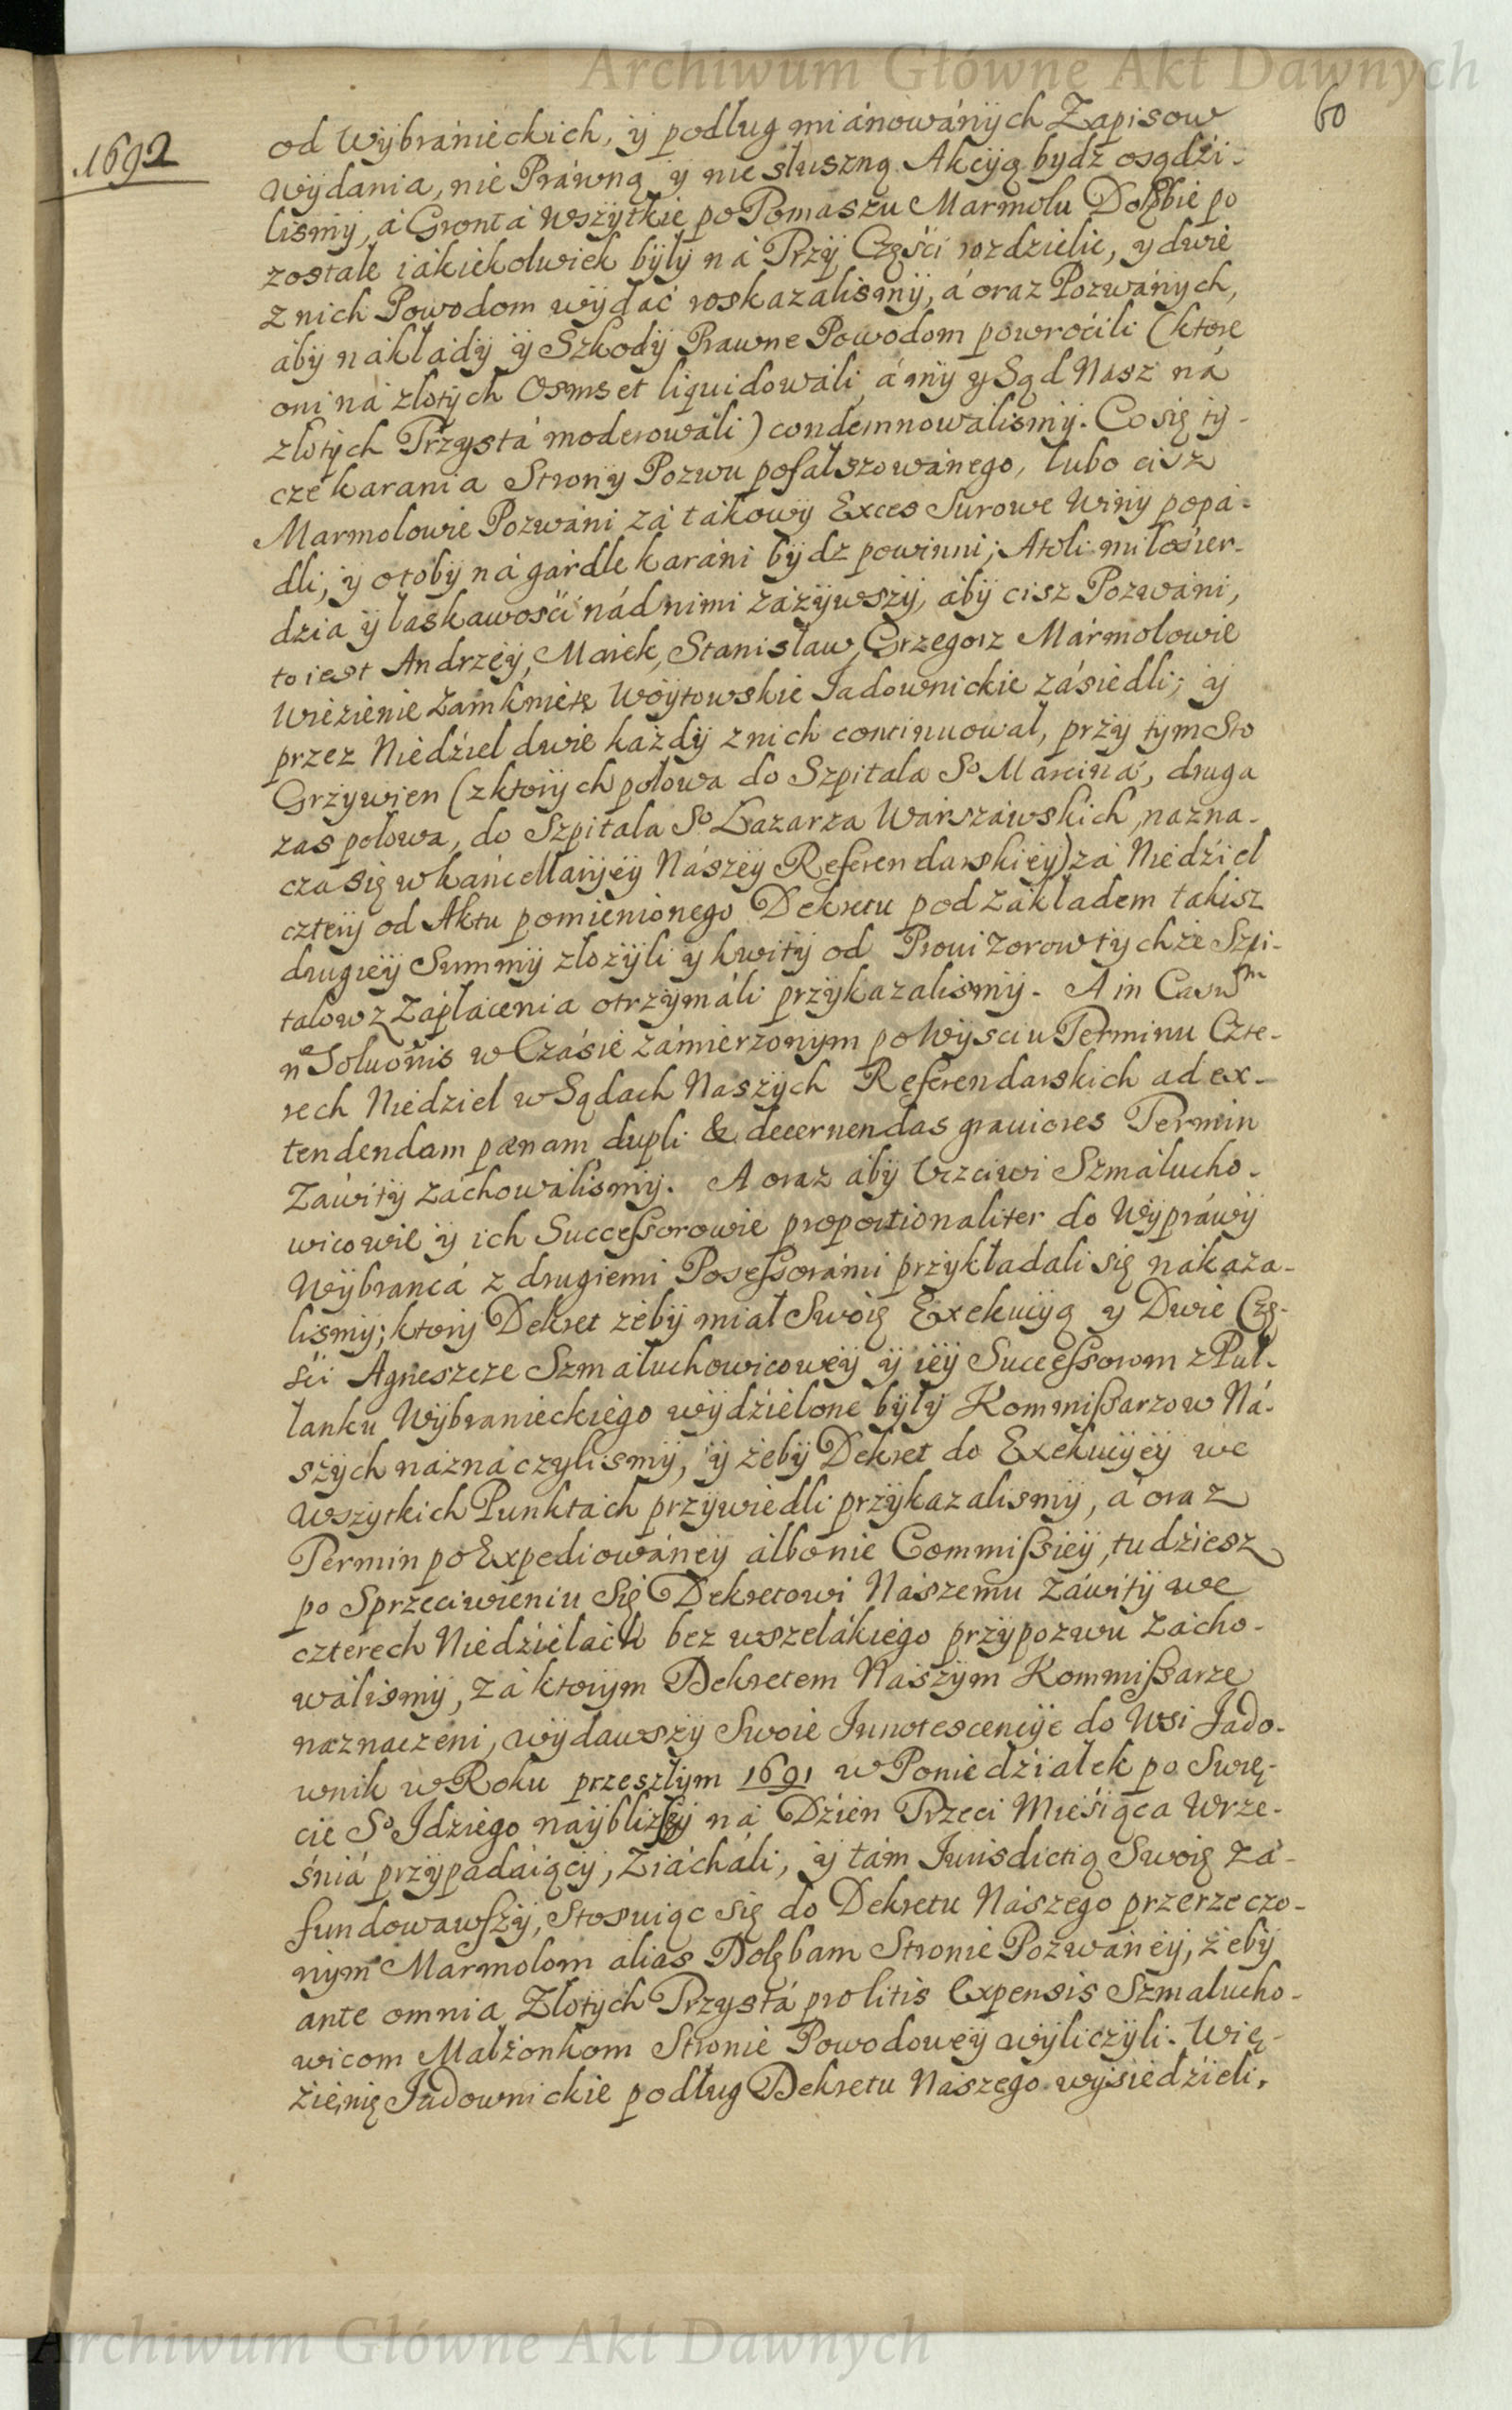 Archiwum Główne Akt Dawnych
60
1692
od Wybránieckich, ÿ podług miánowánÿch Zapisow
wÿdania, nie Práwną ÿ nie słuszną Akcÿą bydz osądzi-
lismÿ, á Gronta wszÿtkie po Tomaszu Marmolu Dołębie po
zostałe iákiekolwiek bÿłÿ ná Trzÿ Części rozdzielic, y dwie
z nich Powodom wÿdać roskazalismÿ, á oraz Pozwánÿch,
ábÿ nákładÿ ÿ Szkodÿ Prawne Powodom powrocili (ktore
oni ná złotÿch Osmset liquidowáli á mÿ y Sąd Nasz ná
złotÿch Trzysta moderowáli) condemnowálismÿ. Co się tÿ-
cze karania Stronÿ Pozwu pofałszowánego, lubo cisz
Marmolowie Pozwáni zá tákowÿ Exces Surowe Winÿ popá-
dli, ÿ otobÿ ná gárdle karáni bÿdz powinni; Atoli miłosier-
dzia ÿ łaskawości nád nimi zázÿwszÿ, ábÿ cisz Pozwáni,
to iest Andrzeÿ, Marek, Stanisław, Grzegorz Mármolowie
Wiezienie Zamkniete Woÿtowskie Jadownickie zásiedli; ÿ
przez Niedziel dwie káżdÿ z nich continuował, przÿ tÿm Sto
Grzÿwien (z ktorÿch połowa do Szpitala So Marciná, druga
zas połowa, do Szpitala So Łazarza Wárszáwskich, nazna-
cza się w káncellarÿeÿ Nászeÿ Referendarskieÿ) zá Niedziel
czterÿ od Aktu pomienionego Dekretu pod zakładem takisz
drugieÿ Summÿ złożÿli ÿ kwitÿ od Prouizorow tÿchże Szpi-
talow z Zápłacenia otrzÿmáli przÿkazalismÿ. A in Casum
n Soluonis w Czásie zámierzonÿm po Wÿsciu Terminu Czte-
rech Niedziel w Sądach Naszÿch Referendarskich ad ex-
tendendam pænam dupli & decernendas grauiores Termin
Záwitÿ záchowálismÿ. A oraz ábÿ Vczciwi Szmálucho-
wicowie ÿ ich Successorowie proportionaliter do Wÿpráwÿ
Wÿbrancá z drugiemi Posessorámi przÿkładali się nákaza-
lismÿ; ktorÿ Dekret żebÿ miał Swoię Exekucÿą y Dwie Czę-
ści Agneszcze Szmałuchowicoweÿ ÿ ieÿ Successorom z Puł-
łanku Wÿbranieckiégo wÿdzielone bÿłÿ Kommissarzow Ná-
szÿch náznáczylismÿ, ÿ żebÿ Dekret do Exekucÿeÿ we
wszÿtkich Punktách przÿwiedli przÿkazalismÿ, á oraz
Termin po Expediowáneÿ álbo nie Commissieÿ, tudziesz
po Sprzeciwieniu się Dekretowi Nászemu Záwitÿ we
czterech Niedzielách bez wszelákiégo przÿpozwu zácho-
wálismÿ, zá ktorÿm Dekretem Nászÿm Kommissarze
náznaczeni, wÿdawszÿ Swoie Innotescencÿe do Wsi Jado-
wnik w Roku przeszłÿm 1691 w Poniedziałek po Swię-
cie So Idziego naÿbliżsy ná Dzień Trzeci Miesiąca Wrze-
śniá przÿpadáiącÿ, Ziácháli, ÿ tám Jurisdictią Swoię zá-
fundowawszÿ, Stosuiąc się do Dekretu Nászego przerzeczo-
nÿm Marmolom alias Dołębam Stronie Pozwáneÿ, żebÿ
ante omnia Złotÿch Trzystá pro litis expensis Szmalucho-
wicom Małżonkom Stronie Powodoweÿ wÿliczÿli. Wię-
zienię Jadownickie podług Dekretu Naszego wÿsiedzieli,
Archiwum Główne Akt Dawnych